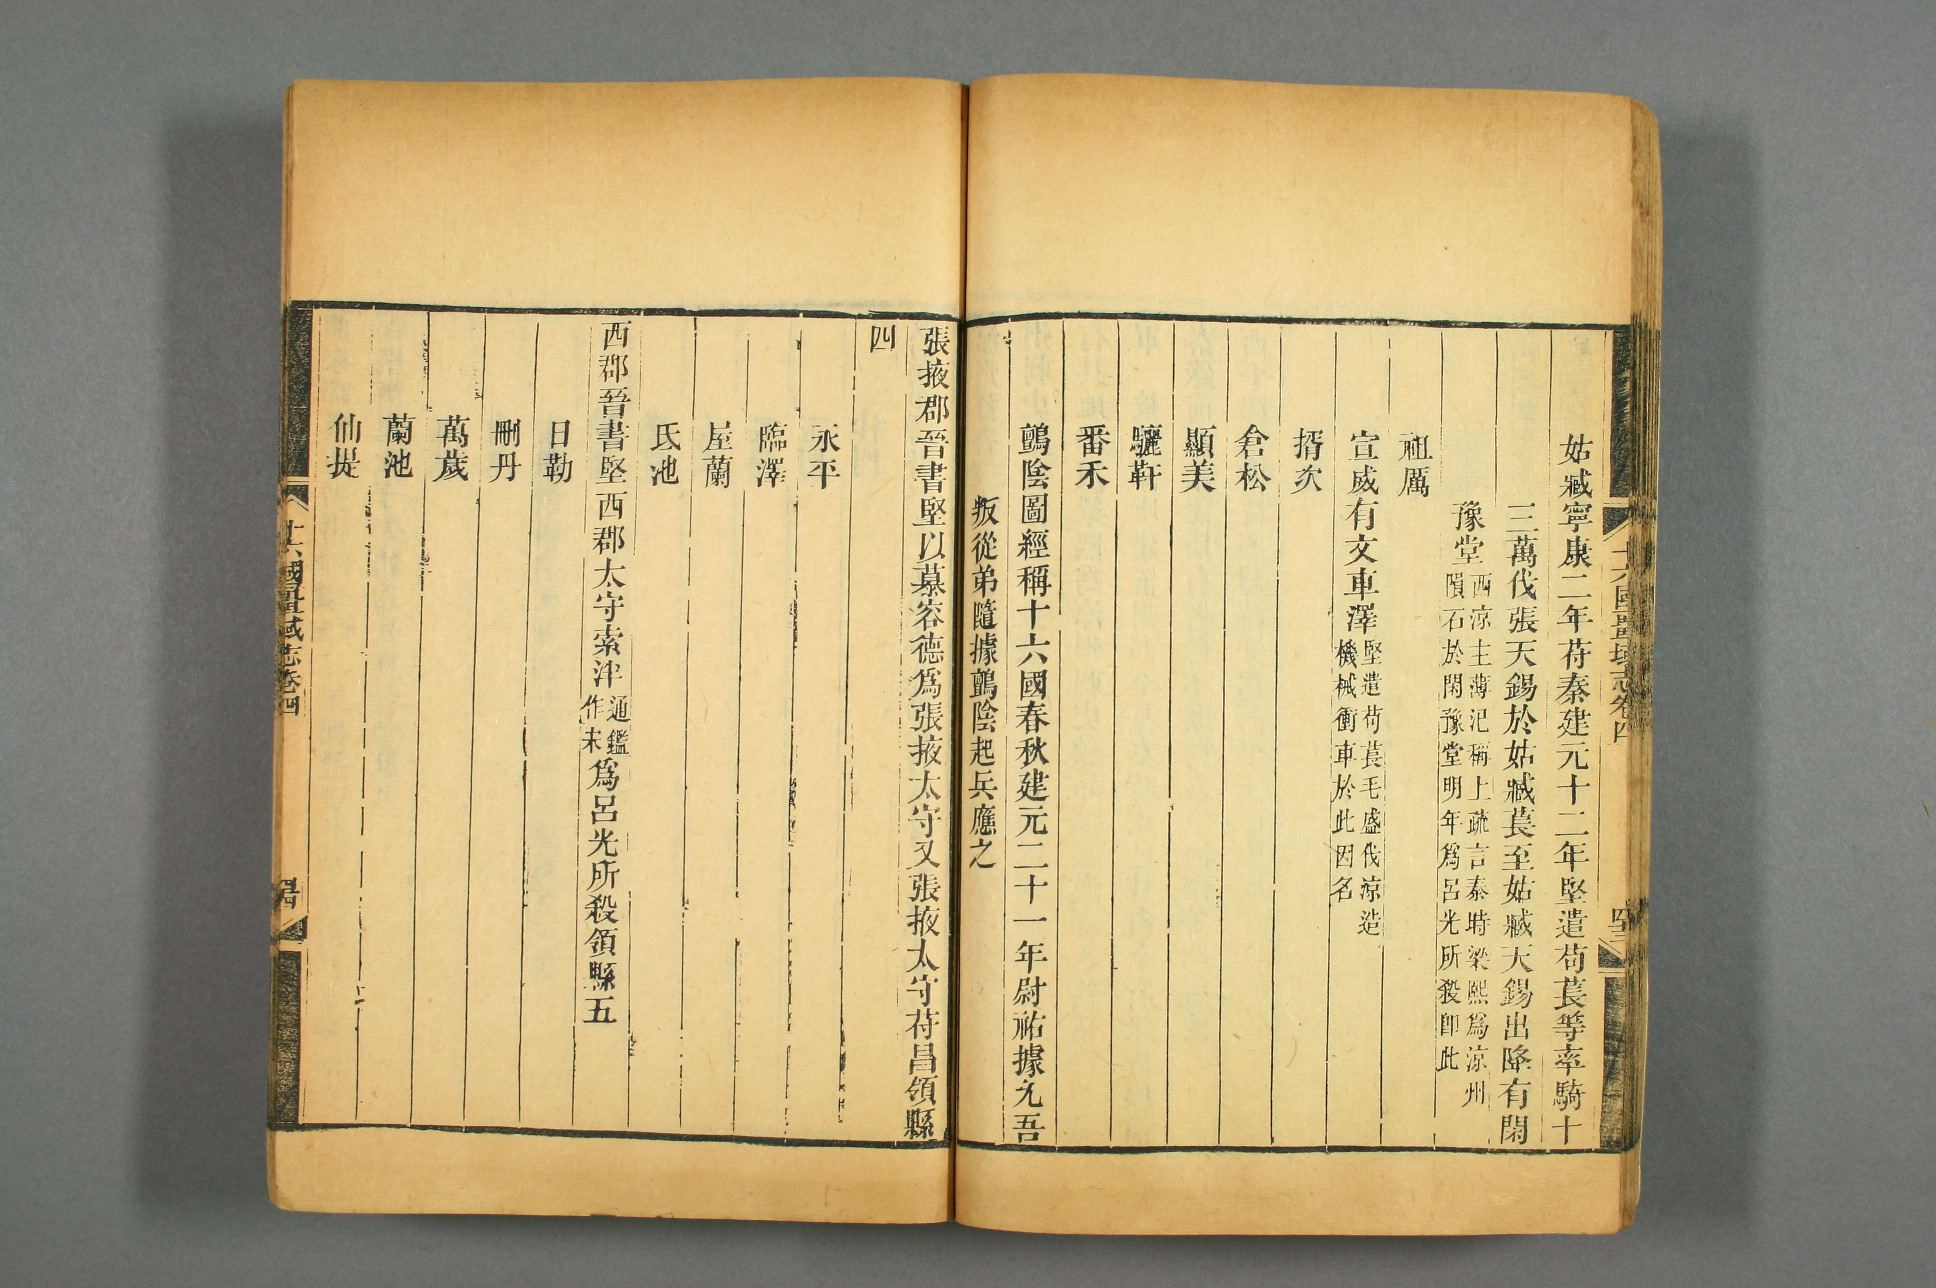 姑臧寧康二年苻秦建元十二年堅遣苟萇等率騎十
三萬伐張天錫於姑臧萇至姑臧天錫出降有閑
豫堂西涼主薄汜稱上疏言秦時梁熙爲涼州
隕石於閑豫堂明年爲呂光所殺即此
祖厲
宣威有文車澤堅遣苟萇毛盛伐涼造
機械衝車於此因名
揟次
倉松
顯美
驪靬
番禾
鸇陰圖經稱十六國春秋建元二十一年尉祐據允吾
叛從弟隨據鸇陰起兵應之
張掖郡晉書堅以慕容德爲張掖太守又張掖太守苻昌領縣
四
永平
臨澤
屋蘭
氐池
西郡晉書堅西郡太守索泮通鑑
作未爲呂光所殺領縣五
日勒
刪丹
萬歲
蘭池
仙提
十六國疆域志卷四